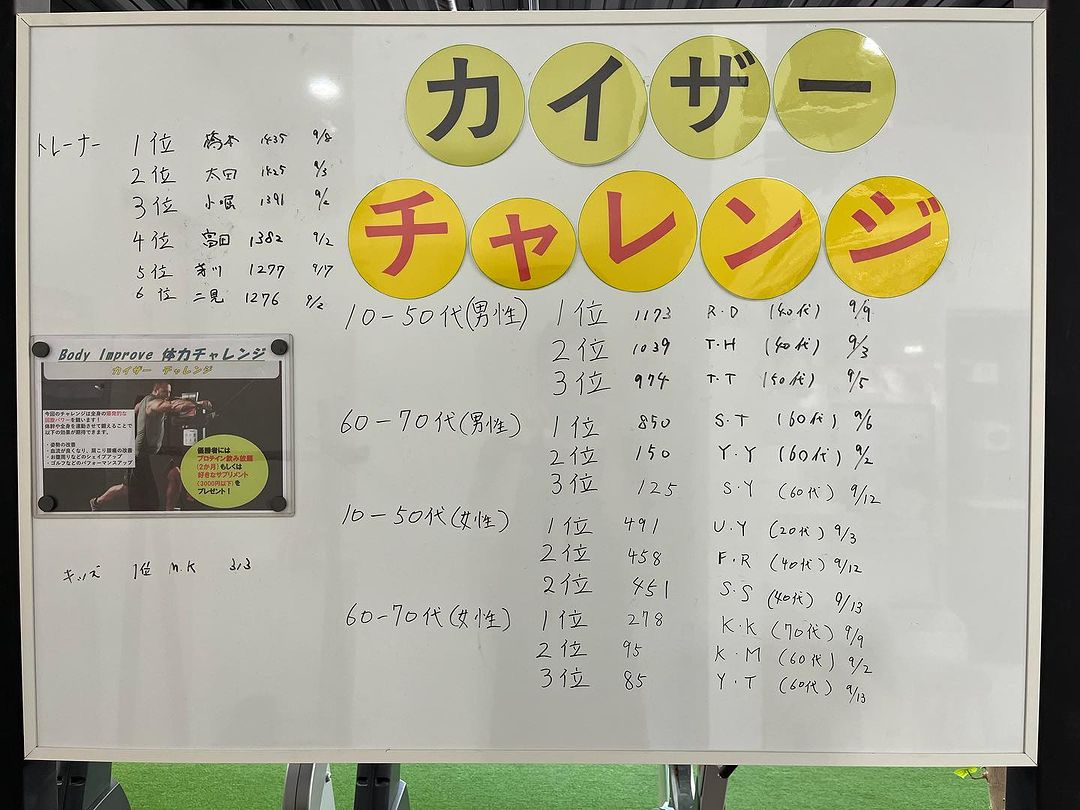 カイザー
チャレンジ
トレーナー 1位 橋本 1435 9/8
2位 太田 1425 9/3
3位 小堀 1391 9/2
4位 富田 1382 9/2
5位 芽川 1277 9/17
6位 二見 1276 9/2
Body Improve 体力チャレンジ
カイザー チャレンジ
今回のチャレンジは全身の爆発的な
回数パワーを競います！
体幹や全身を連動させて鍛えることで
以下の効果が期待できます。
・姿勢の改善
・血流が良くなり、肩こり腰痛の改善
・お腹周りなどのシェイプアップ
・ゴルフなどのパフォーマンスアップ
優勝者には
プロテイン飲み放題
(2か月)もしくは
好きなサプリメント
(3000円以下)を
プレゼント！
キッズ 1位 M.K 313
10-50代(男性) 1位 1173 R.D (40代) 9/9
2位 1039 T.H (40代) 9/3
3位 974 T.T (50代) 9/5
60-70代(男性) 1位 850 S.T (60代) 9/6
2位 150 Y.Y (60代) 9/2
3位 125 S.Y (60代) 9/12
10-50代(女性) 1位 491 U.Y (20代) 9/3
2位 458 F.R (40代) 9/12
2位 451 S.S (40代) 9/13
60-70代(女性) 1位 278 K.K (70代) 9/9
2位 95 K.M (60代) 9/2
3位 85 Y.T (60代) 9/13